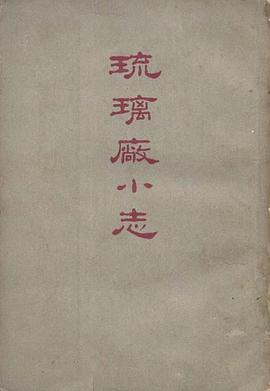 琉璃厰小志